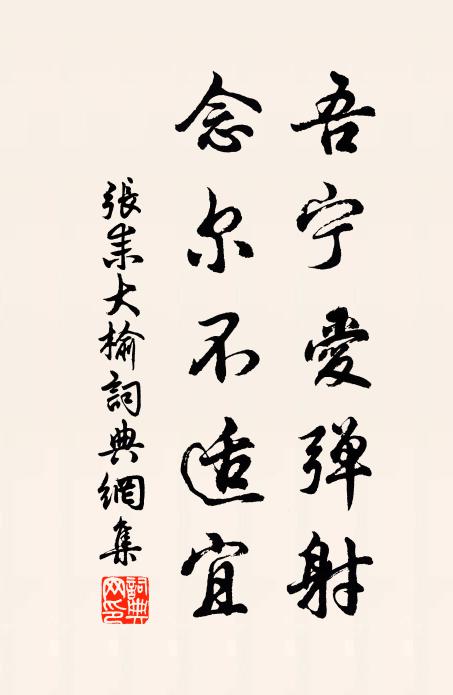 吾宁愛弹射
念尔不适宜
張耒大榆詞典網集
詞典网印